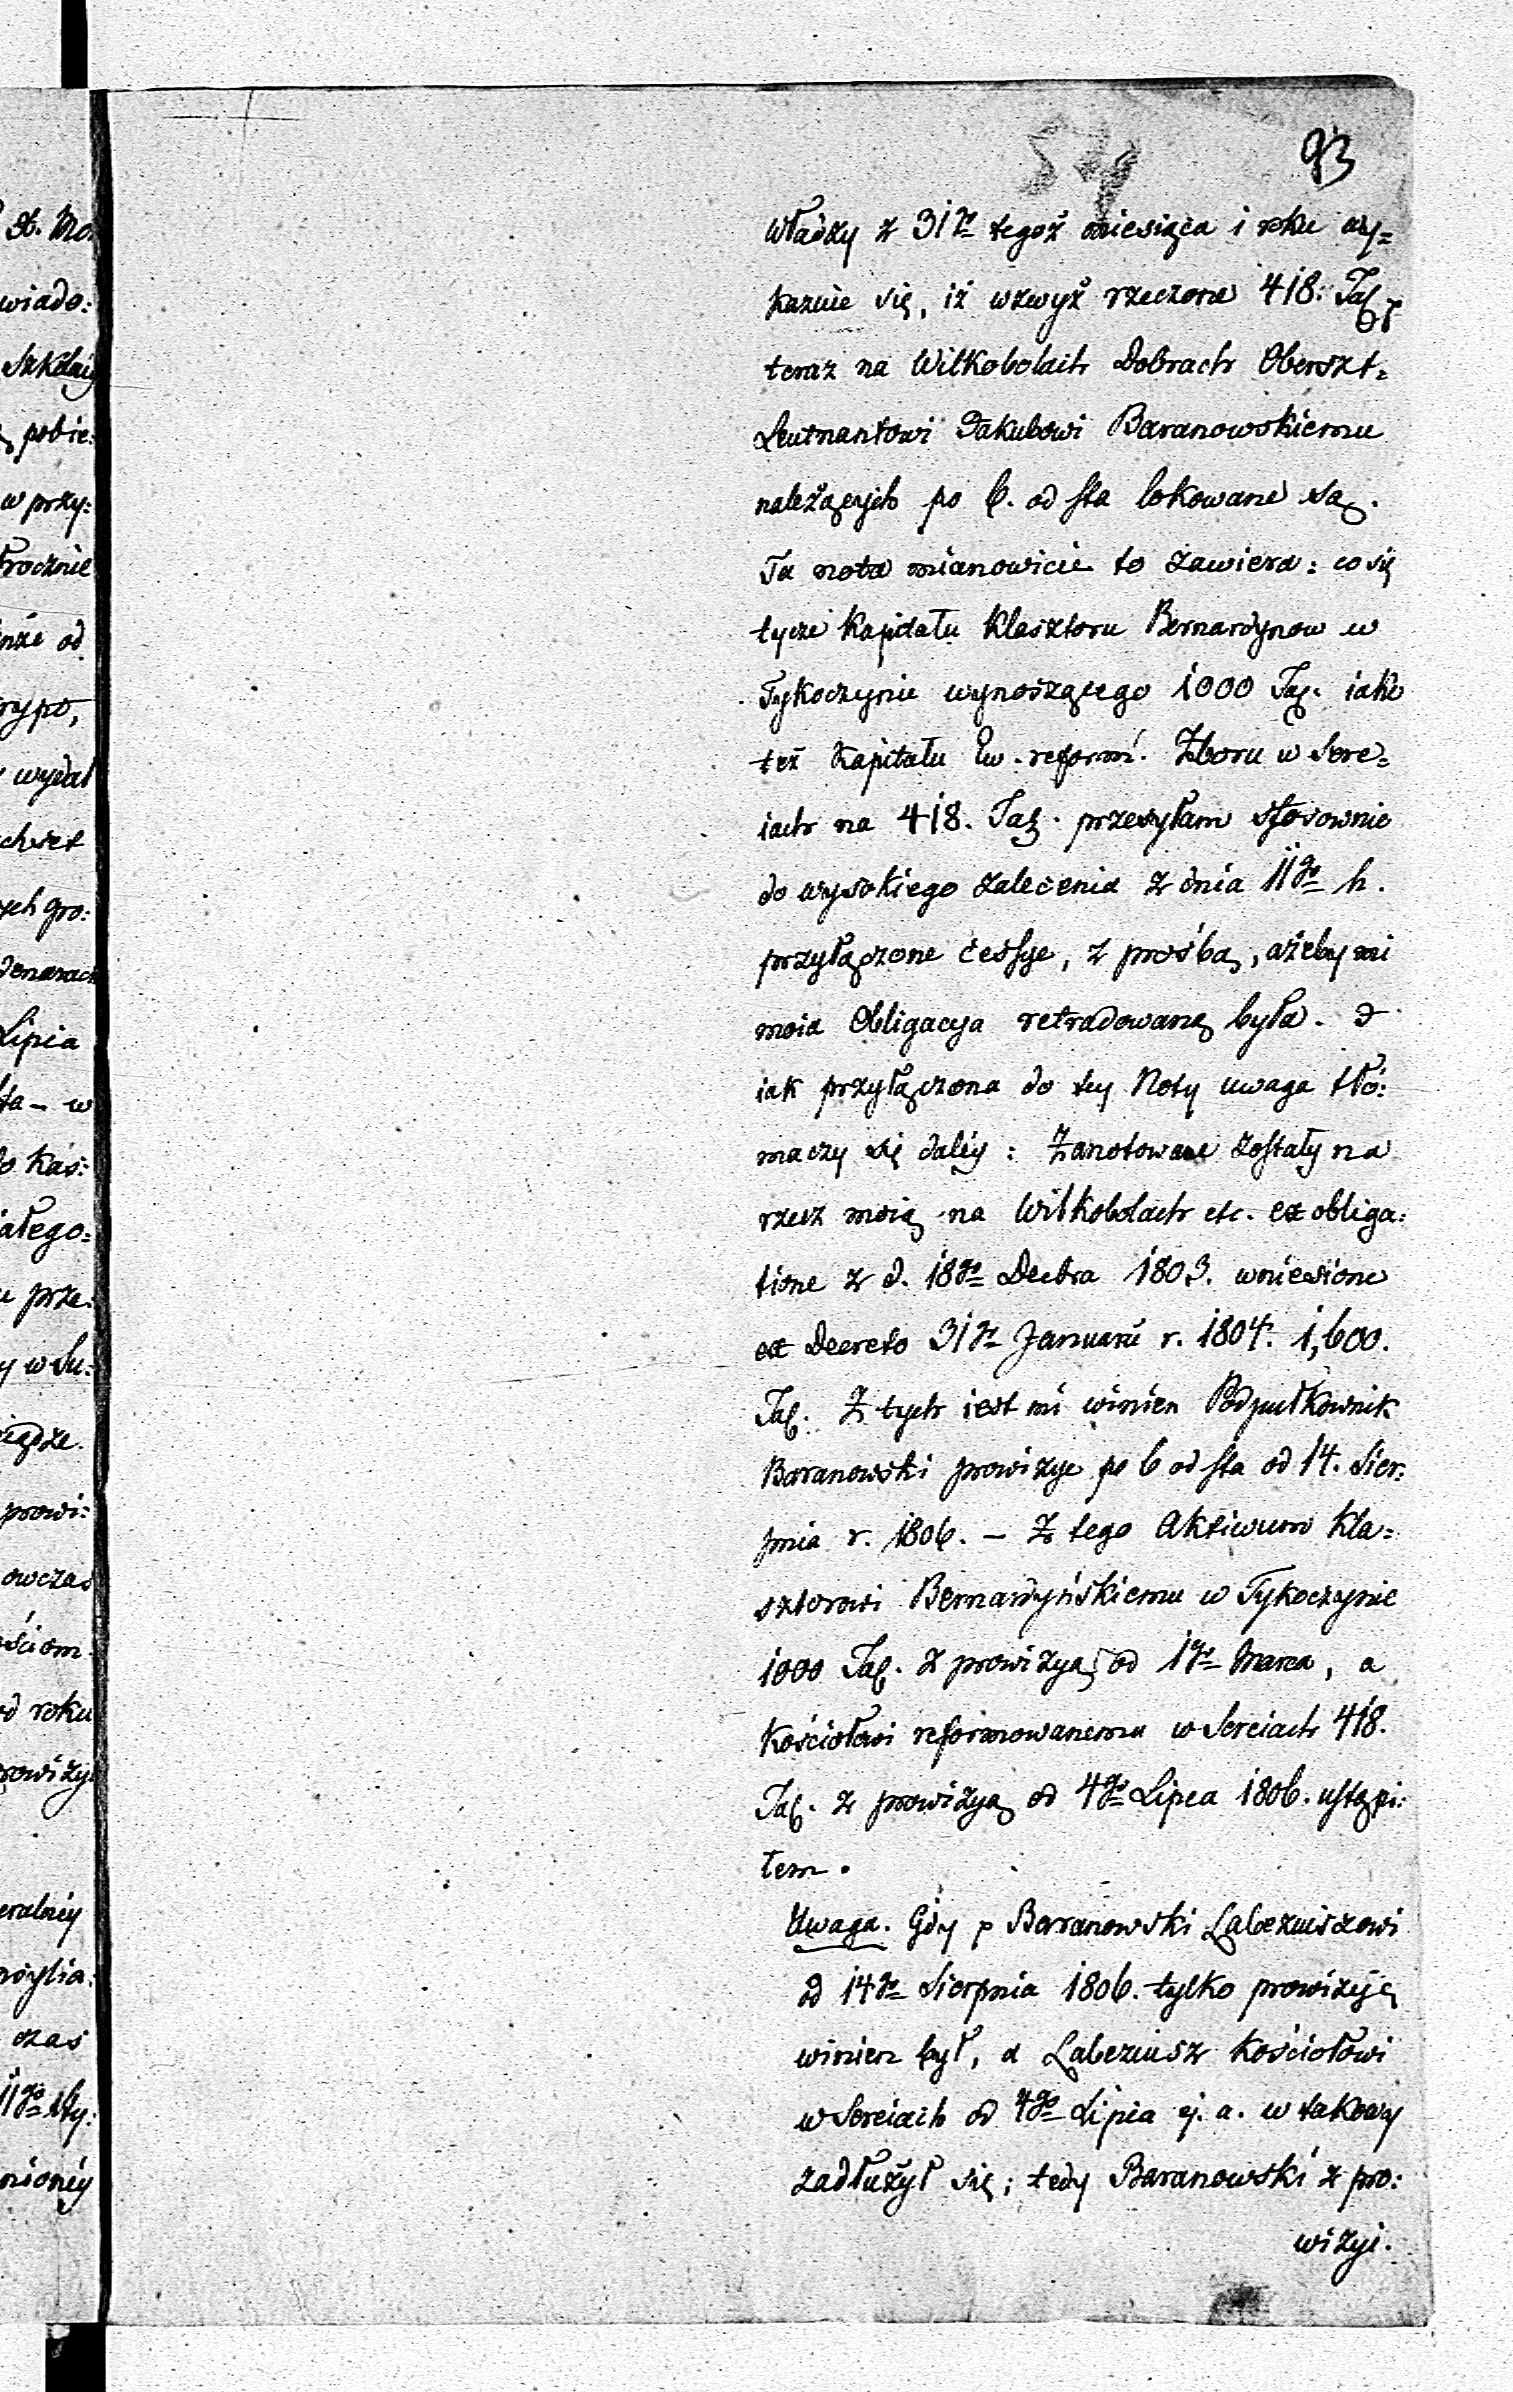 93
władzy z 31go tegoż miesiąca i roku wy=
kazuie się, iż wzwyż rzeczone 418. Tal.
teraz na Wilkobolach Dobrach Oberszt=
Leutnantowi Jakubowi Baranowskiemu
należących po 6. od sta lokowane są.
Ta nota mianowicie to zawiera: co się
tycze Kapitału Klasztoru Bernardynow w
Tykoczynie wynoszącego 1000 Tal. iako
też Kapitału Ew. reform. Zboru w Sere=
iach na 418. Tal. przesyłam stosownie
do wysokiego zalecenia z dnia 11go h.
przyłączone cessye, z prośbą, ażeby mi
moia Obligacya retradowaną była. I
iak przyłączona do tey Noty uwaga tłó:
maczy się daléy: Zanotowane zostały na
rzecz moią na Wilkobolach etc. ex obliga:
tione z d. 18go Decbra 1803. wniesione
ex Decreto 31go Januarii r. 1804. 1,600.
Tal. Z tych iest mi winien Podpułkownik
Baranowski prowizye po 6 od sta od 14. Sier:
pnia r. 1806. – Z tego Aktiwum Kla=
sztorowi Bernardyńskiemu w Tykoczynie
1000 Tal. z prowizyą od 1go Marca, a
Kościołowi reformowanemu w Sereiach 418.
Tal. z prowizyą od 4go Lipca 1806. ustąpi:
łem.
Uwaga. Gdy p Baranowski Labeziuszowi
od 14go Sierpnia 1806. tylko prowizyę
winien był, a Labeziusz Kościołowi
w Sereiach od 4go Lipia ej. a. w takowy
zadłużył się; tedy Baranowski z pro:
wizyi.
wiado:
pobie:
w przy:
wydał
Lipia
prze:
prowi:
od roku
czas